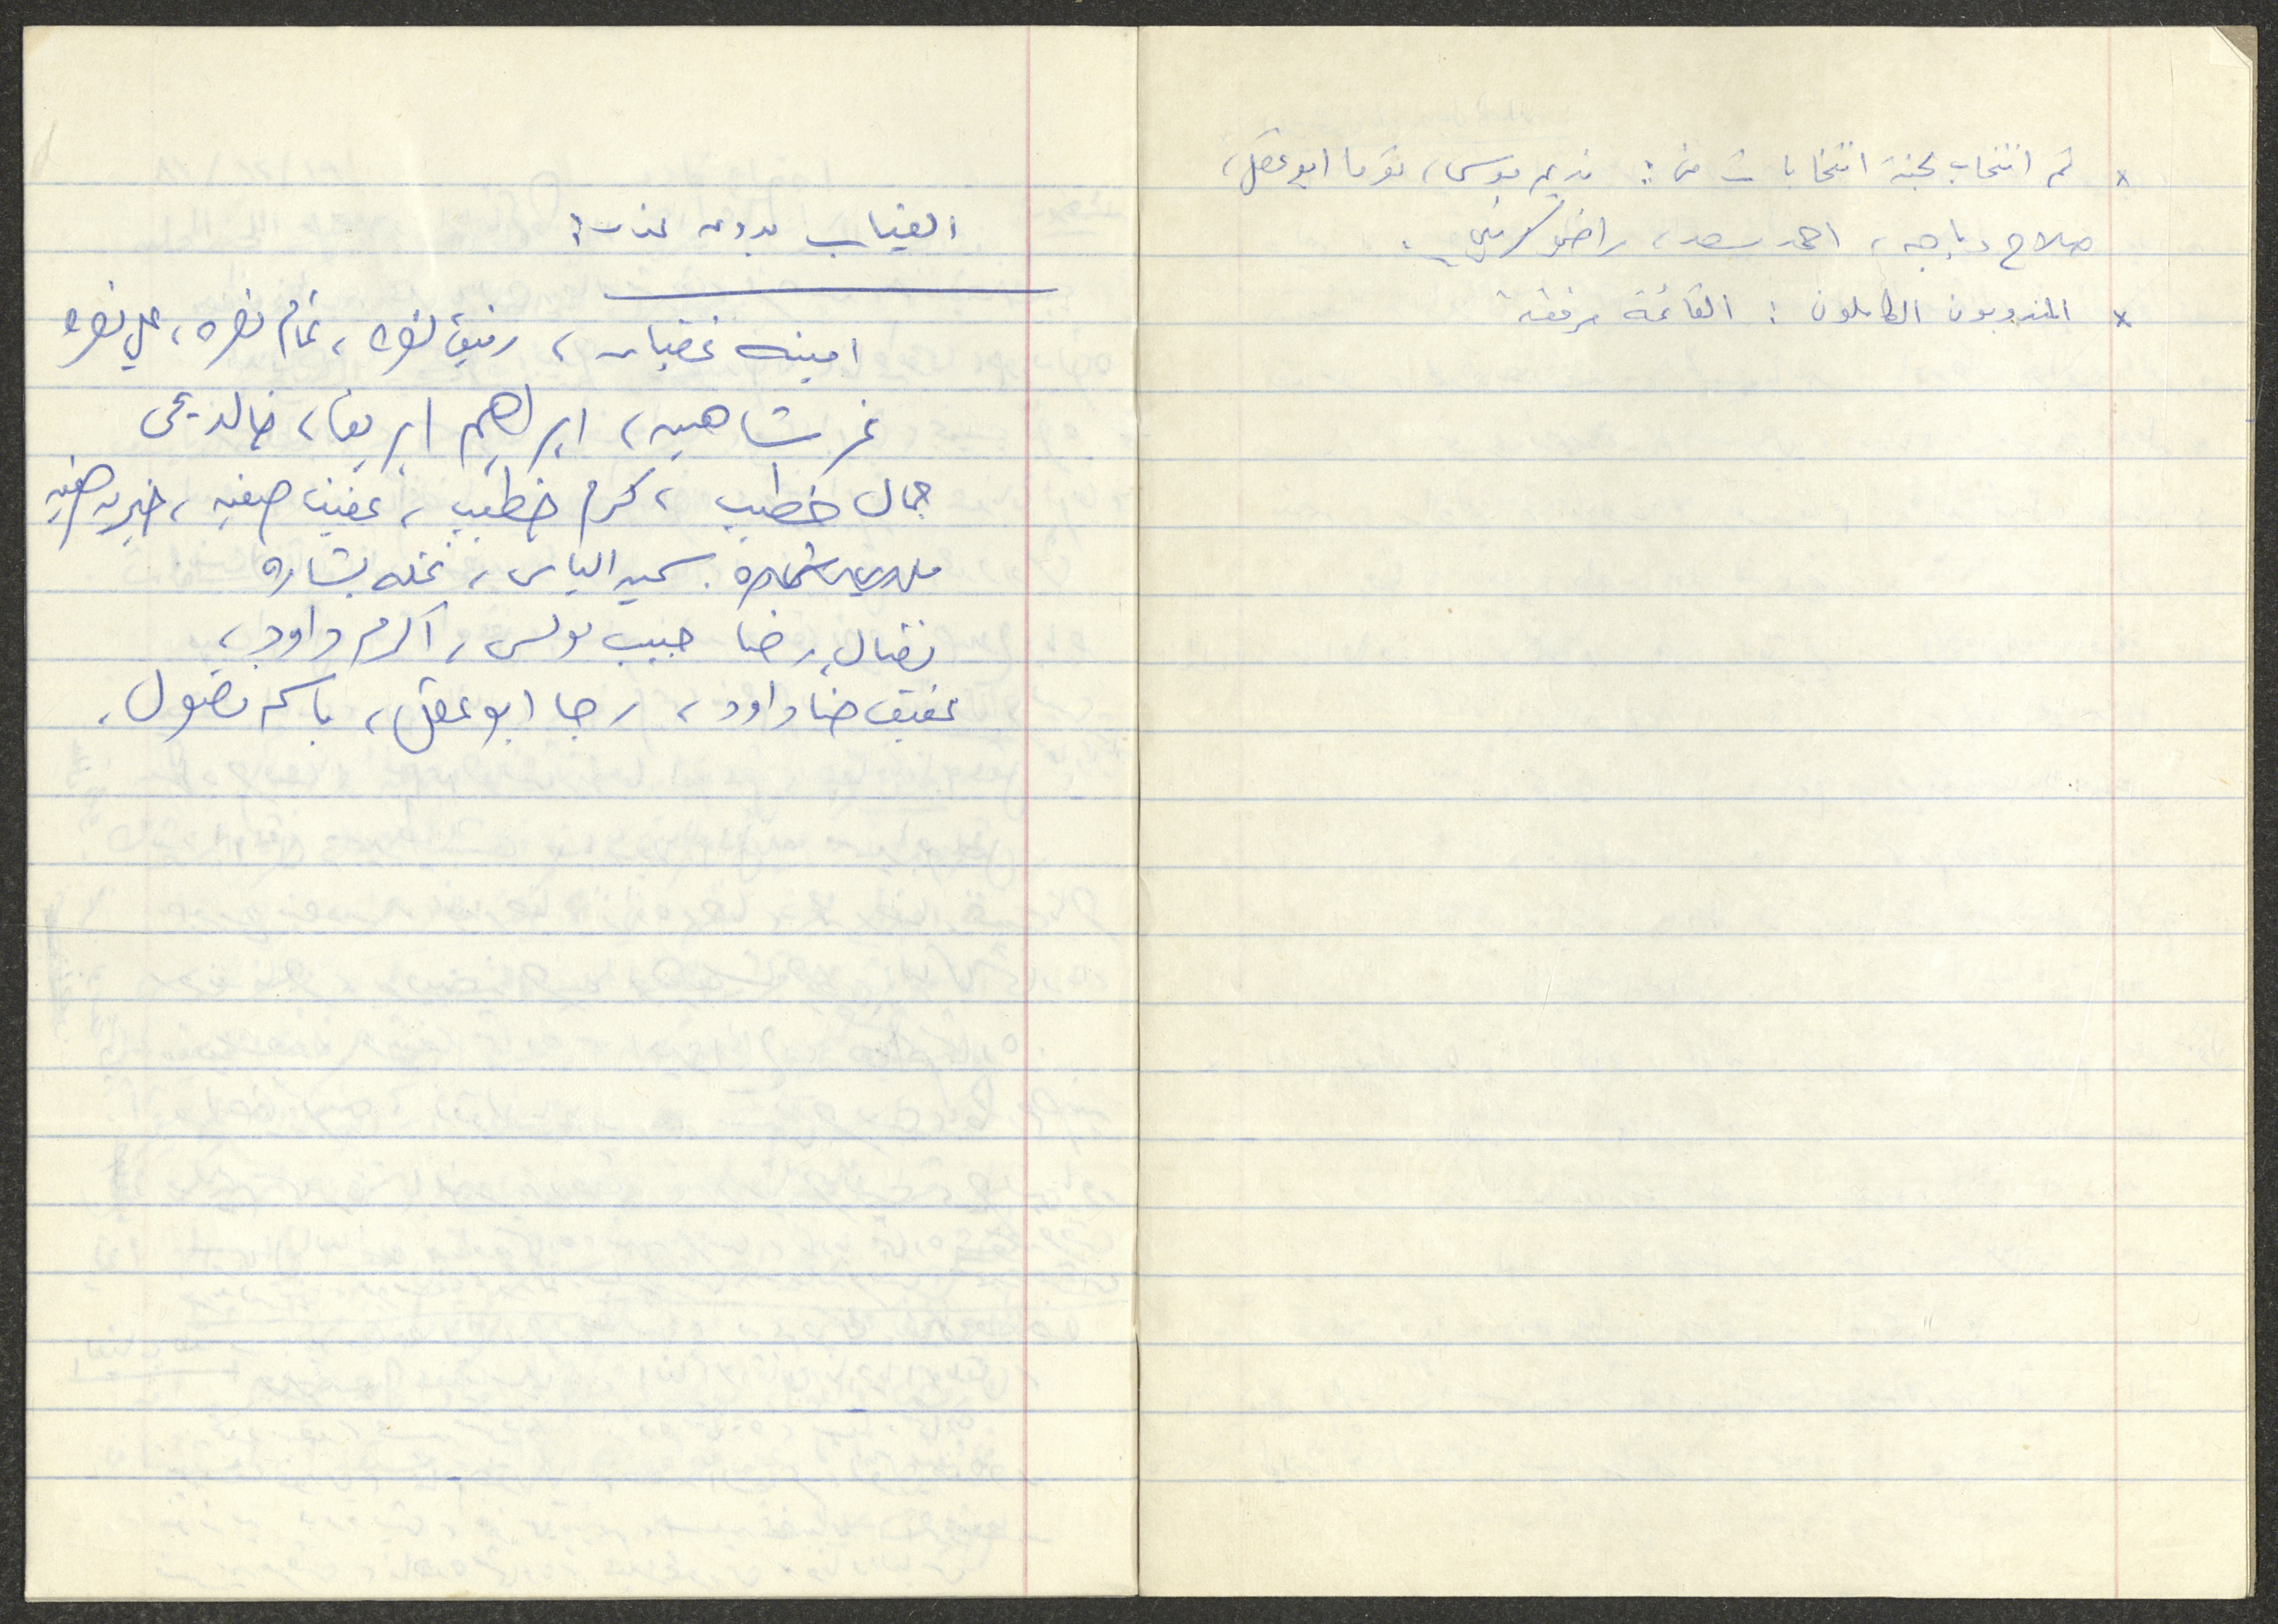 × تم انتخاب لجنة انتخابات من: نديم موسى، توما ابو عقل،
صلاح دباجه، احمد سعد، راضي
× المندوبون الكاملون: القائمة مرفقة
الغياب بدون عذر:
امينه غضبان، رفيق نصره، تمام نصره، علي نصره
نمر شاهين، ابراهيم ابريق، خالد يحيى
جمال خطيب، كرم خطيب، عفيف صفيه، خيريه صفيه
سمير الياس، نخله بشاره
نضال رضا حبيب بولس، اكرم داود،
عفيف حنا داود، رجا ابو عقل، باسم مضول.